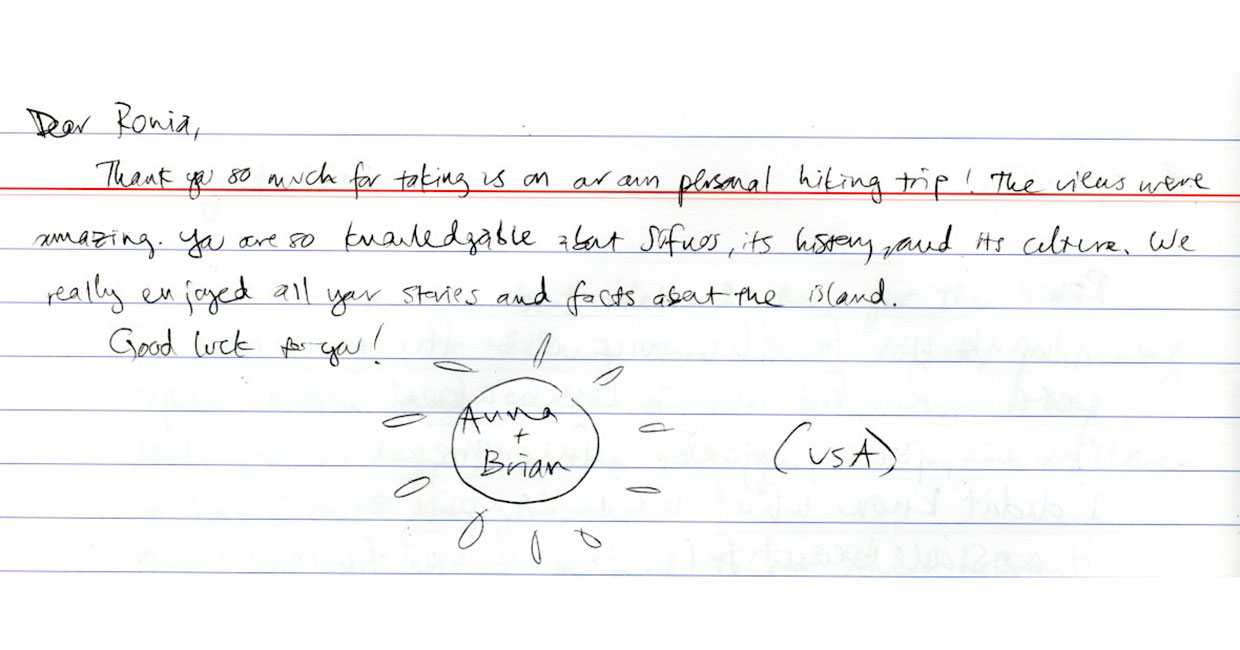 Dear Ronia,
Thank you so much for taking us on our own personal hiking trip! The views were
amazing. You are so knowledgable about Sifnos, its history, and its culture. We
really enjoyed all your stories and facts about the island.
Good luck for you!
Anna
+
Brian
(USA)